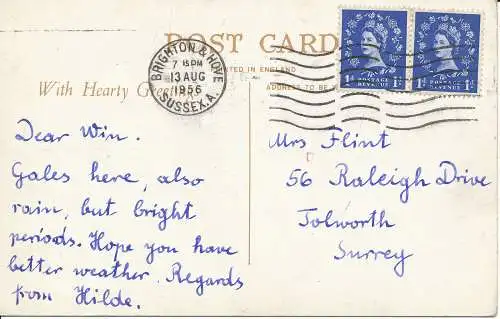 POST CARD
BRIGHTON & HOVE
7 15PM
13 AUG
1956
SUSSEX.A.
PRINTED IN ENGLAND
With Hearty Gree
ADDRESS TO BE
POSTAGE REVENUE
POSTAGE REVENUE
Dear Win.
Gales here, also
rain, but bright
periods. Hope you have
better weather. Regards
from Hilde.
Mrs Flint
56 Raleigh Drive
Tolworth
Surrey